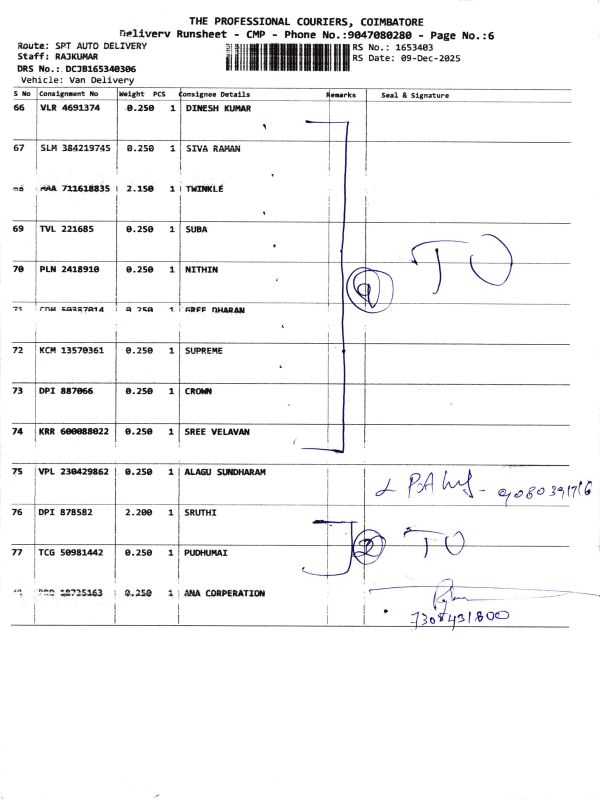 THE PROFESSIONAL COURIERS, COIMBATORE
Delivery Runsheet - CMP - Phone No.:9047080280 - Page No.:6
Route: SPT AUTO DELIVERY
RS No.: 1653403
Staff: RAJKUMAR
RS Date: 09-Dec-2025
DRS No.: DCJB165340306
Vehicle: Van Delivery
S No Consignment No Weight PCS Consignee Details Remarks Seal & Signature
66 VLR 4691374 0.250 1 DINESH KUMAR
67 SLM 384219745 0.250 1 SIVA RAMAN
MAA 711618835 2.150 1 TWINKLE
69 TVL 221685 0.250 1 SUBA
70 PLN 2418910 0.250 1 NITHIN
9 TO
71 0.250 1 SREE DHARAN
72 KCM 13570361 0.250 1 SUPREME
73 DPI 887066 0.250 1 CROWN
74 KRR 600088022 0.250 1 SREE VELAVAN
75 VPL 230429862 0.250 1 ALAGU SUNDHARAM
76 DPI 878582 2.200 1 SRUTHI
2 TO
77 TCG 50981442 0.250 1 PUDHUMAI
18735163 0.250 1 ANA CORPERATION
7308431800